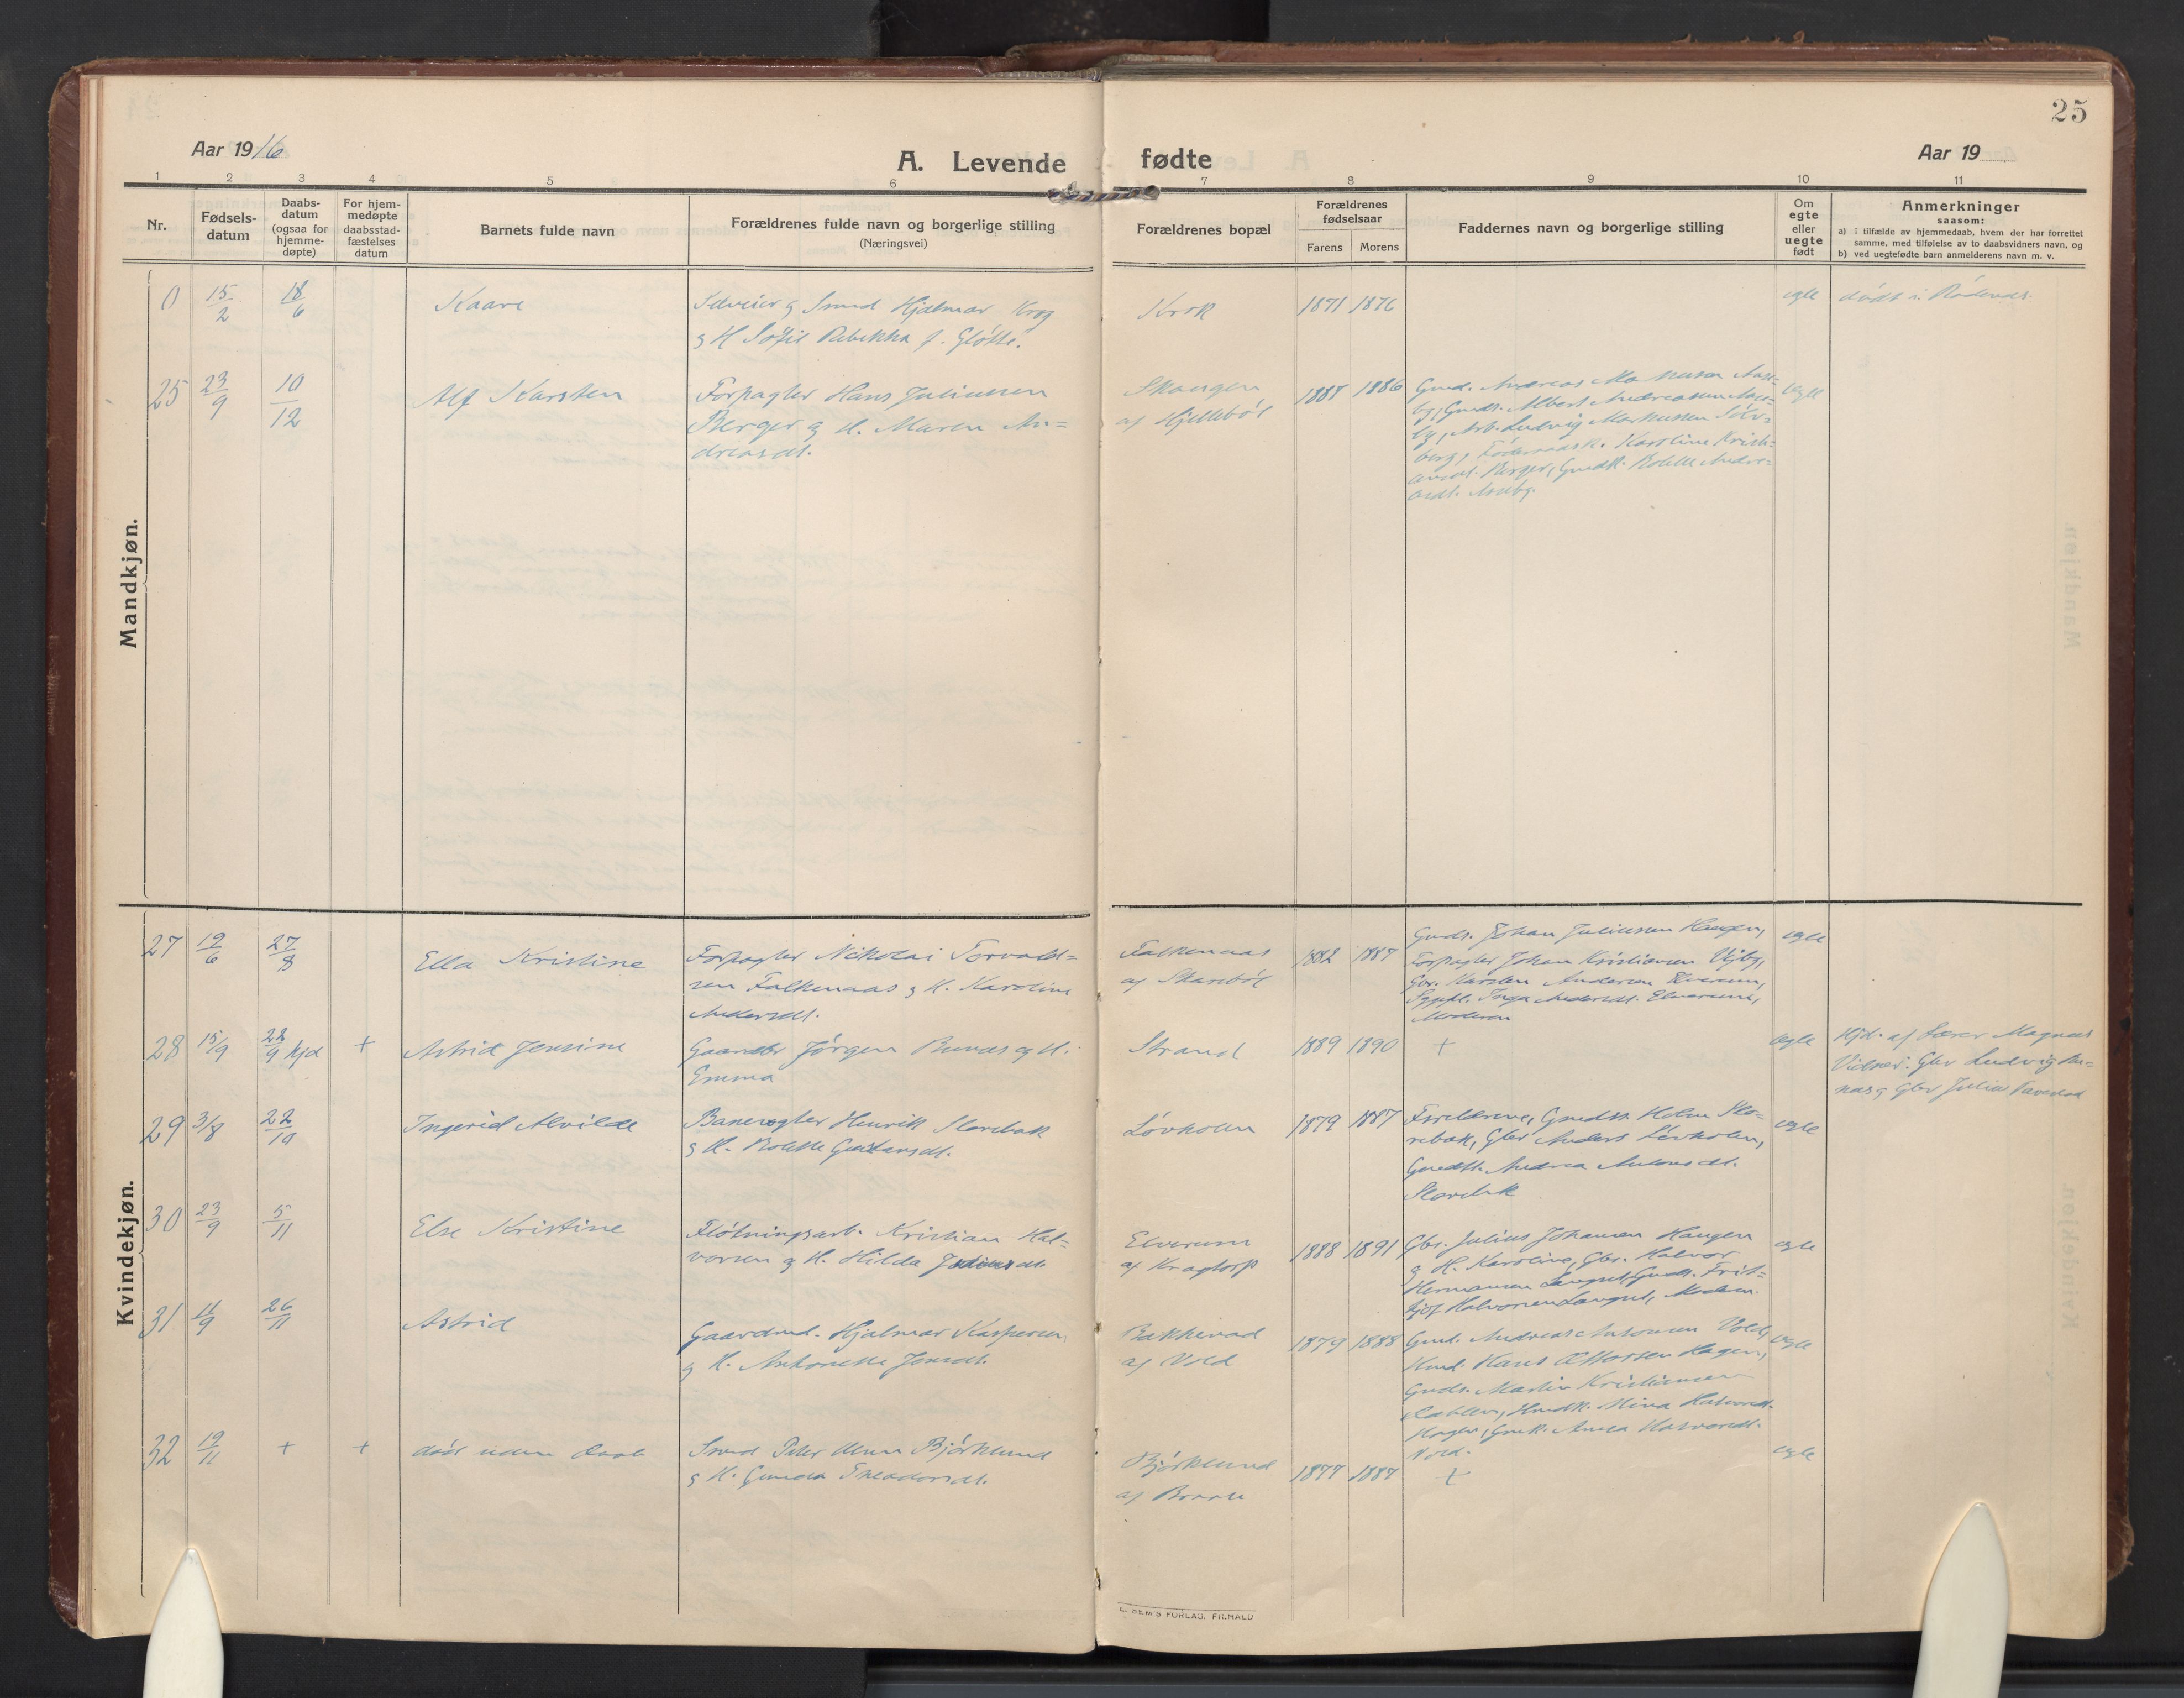 25
Aar 1916
A. Levende fødte
Aar 19
1 2 3 4 5 6 7 8 9 10 11
Nr.
Fødsels-
datum
Daabs-
datum
(ogsaa for
hjemme-
døpte)
For hjem-
medøpte
daabsstad-
fæstelses
datum
Barnets fulde navn
Forældrenes fulde navn og borgerlige stilling
(Næringsvei)
Forældrenes bopæl
Forældrenes
fødselsaar
Farens Morens
Faddernes navn og borgerlige stilling
Om
egte
eller
uegte
født
Anmerkninger
saasom:
a) i tilfælde av hjemmedaab, hvem der har forrettet
samme, med tilføielse av to daabsvidners navn, og
b) ved uegtefødte barn anmelderens navn m. v.
Mandkjøn.
0 15/2 18/6 Kaare
Selveier & Smed Hjalmar Krog
& H. Sofie Rebekka f. Gløtte.
Krok 1871 1876
egte
døbt i Rødenes.
25 23/9 10/12 Alf Karsten
Forpagter Hans Juliussen
Berger & H. Maren An=
dreasdt.
Skaugen
af Hjellebøl
1887 1886
Gmd. Andreas Magnusen Aase=
by, Gmds. Albert Andreassen Aase=
by, Arb. Ludvig Magnussen Sølv=
berg, Føderaadsk. Karoline Kristi=
ansdt. Berger, Gmdk. Bolette Andre=
asdt. Aaseby.
egte
Kvindekjøn.
27 19/6 27/8 Ella Kristine
Forpagter Nikolai Torvald=
sen Falkenaas & H. Karoline
Andersdt.
Falkenaas
af Skarebøl
1882 1887
Gmds. Johan Juliussen Haugen,
Forpagter Johan Kristiansen Visby,
Gbr. Karsten Andersen Elverum,
Sypft. Inga Andersdt. Elverum,
Moderen
egte
28 15/9 22/9 hjd + Astrid Jensine
Gaardbr Jørgen Bunæs og H.
Emma
Strand 1889 1890 +
egte
Hjd. af Lærer Magnus
Vidnes: Gbr Ludvig Bu=
næs & Gbr Julius
29 3/8 22/10 Ingerid Alvilde
Banevogter Henrik Slorebak
& H. Bolette Gustavsdt.
Løvholen 1879 1887
Forældrene, Gmdst. Helene Slo=
rebak, Gbr Anders Løvholen,
Gmdst. Andrea Antonsdt.
Slorebak
egte
30 23/9 5/11 Else Kristine
Fløtningsarb. Kristian Hal=
vorsen & H. Hilda Juliusdt.
Elverum
af Kragtorp
1888 1891
Gbr. Julius Johansen Haugen
& H. Karoline, Gbr. Halvor
Hermansen Langset, Gmds. Frit=
hjof Halvorsen Langset, Moderen.
egte
31 11/9 26/11 Astrid
Gaardmd. Hjalmar Kaspersen
& H. Antonette Jensdt.
Bakkevad
af Vold
1879 1888
Gmd. Andreas Antonsen Vold,
Hmd. Hans Ottossen Hagen,
Gmds. Martin Kristiansen
Hmdk. Mina Halvorsdt.
Hagen, Gmdk. Anna Halvorsdt.
Vold.
egte
32 19/11 + + død uden daab
Smed Peter Olsen Bjørklund
& H. Gunda Theodorsdt.
Bjørklund
af
1877 1887 +
egte
E. SEM'S FORLAG, FR.HALD